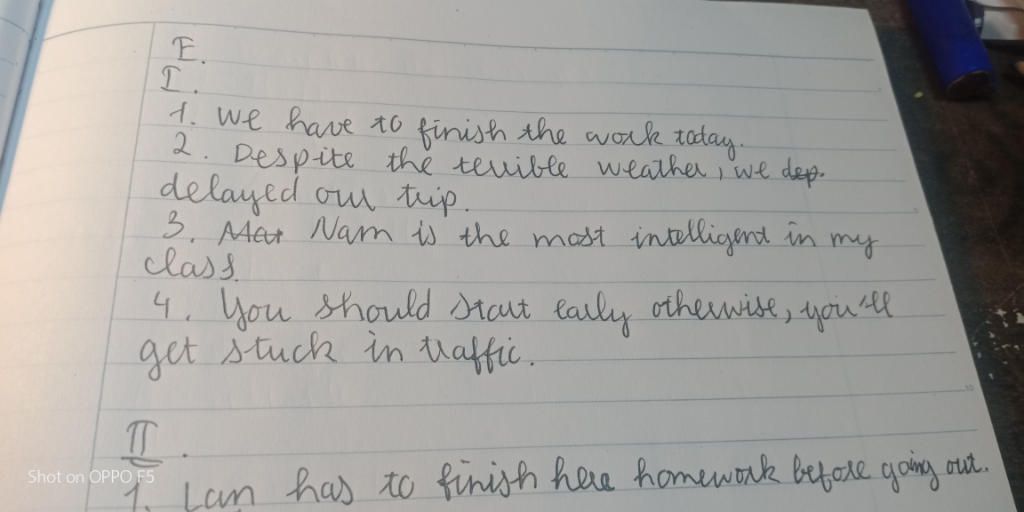 E.
I.
1. We have to finish the work today.
2. Despite the terrible weather, we dep.
delayed our trip.
3. Mat Nam is the most intelligent in my
class.
4. You should start early otherwise, you'll
get stuck in traffic.
II.
1. Lan has to finish here homework before going out.
Shot on OPPO F5